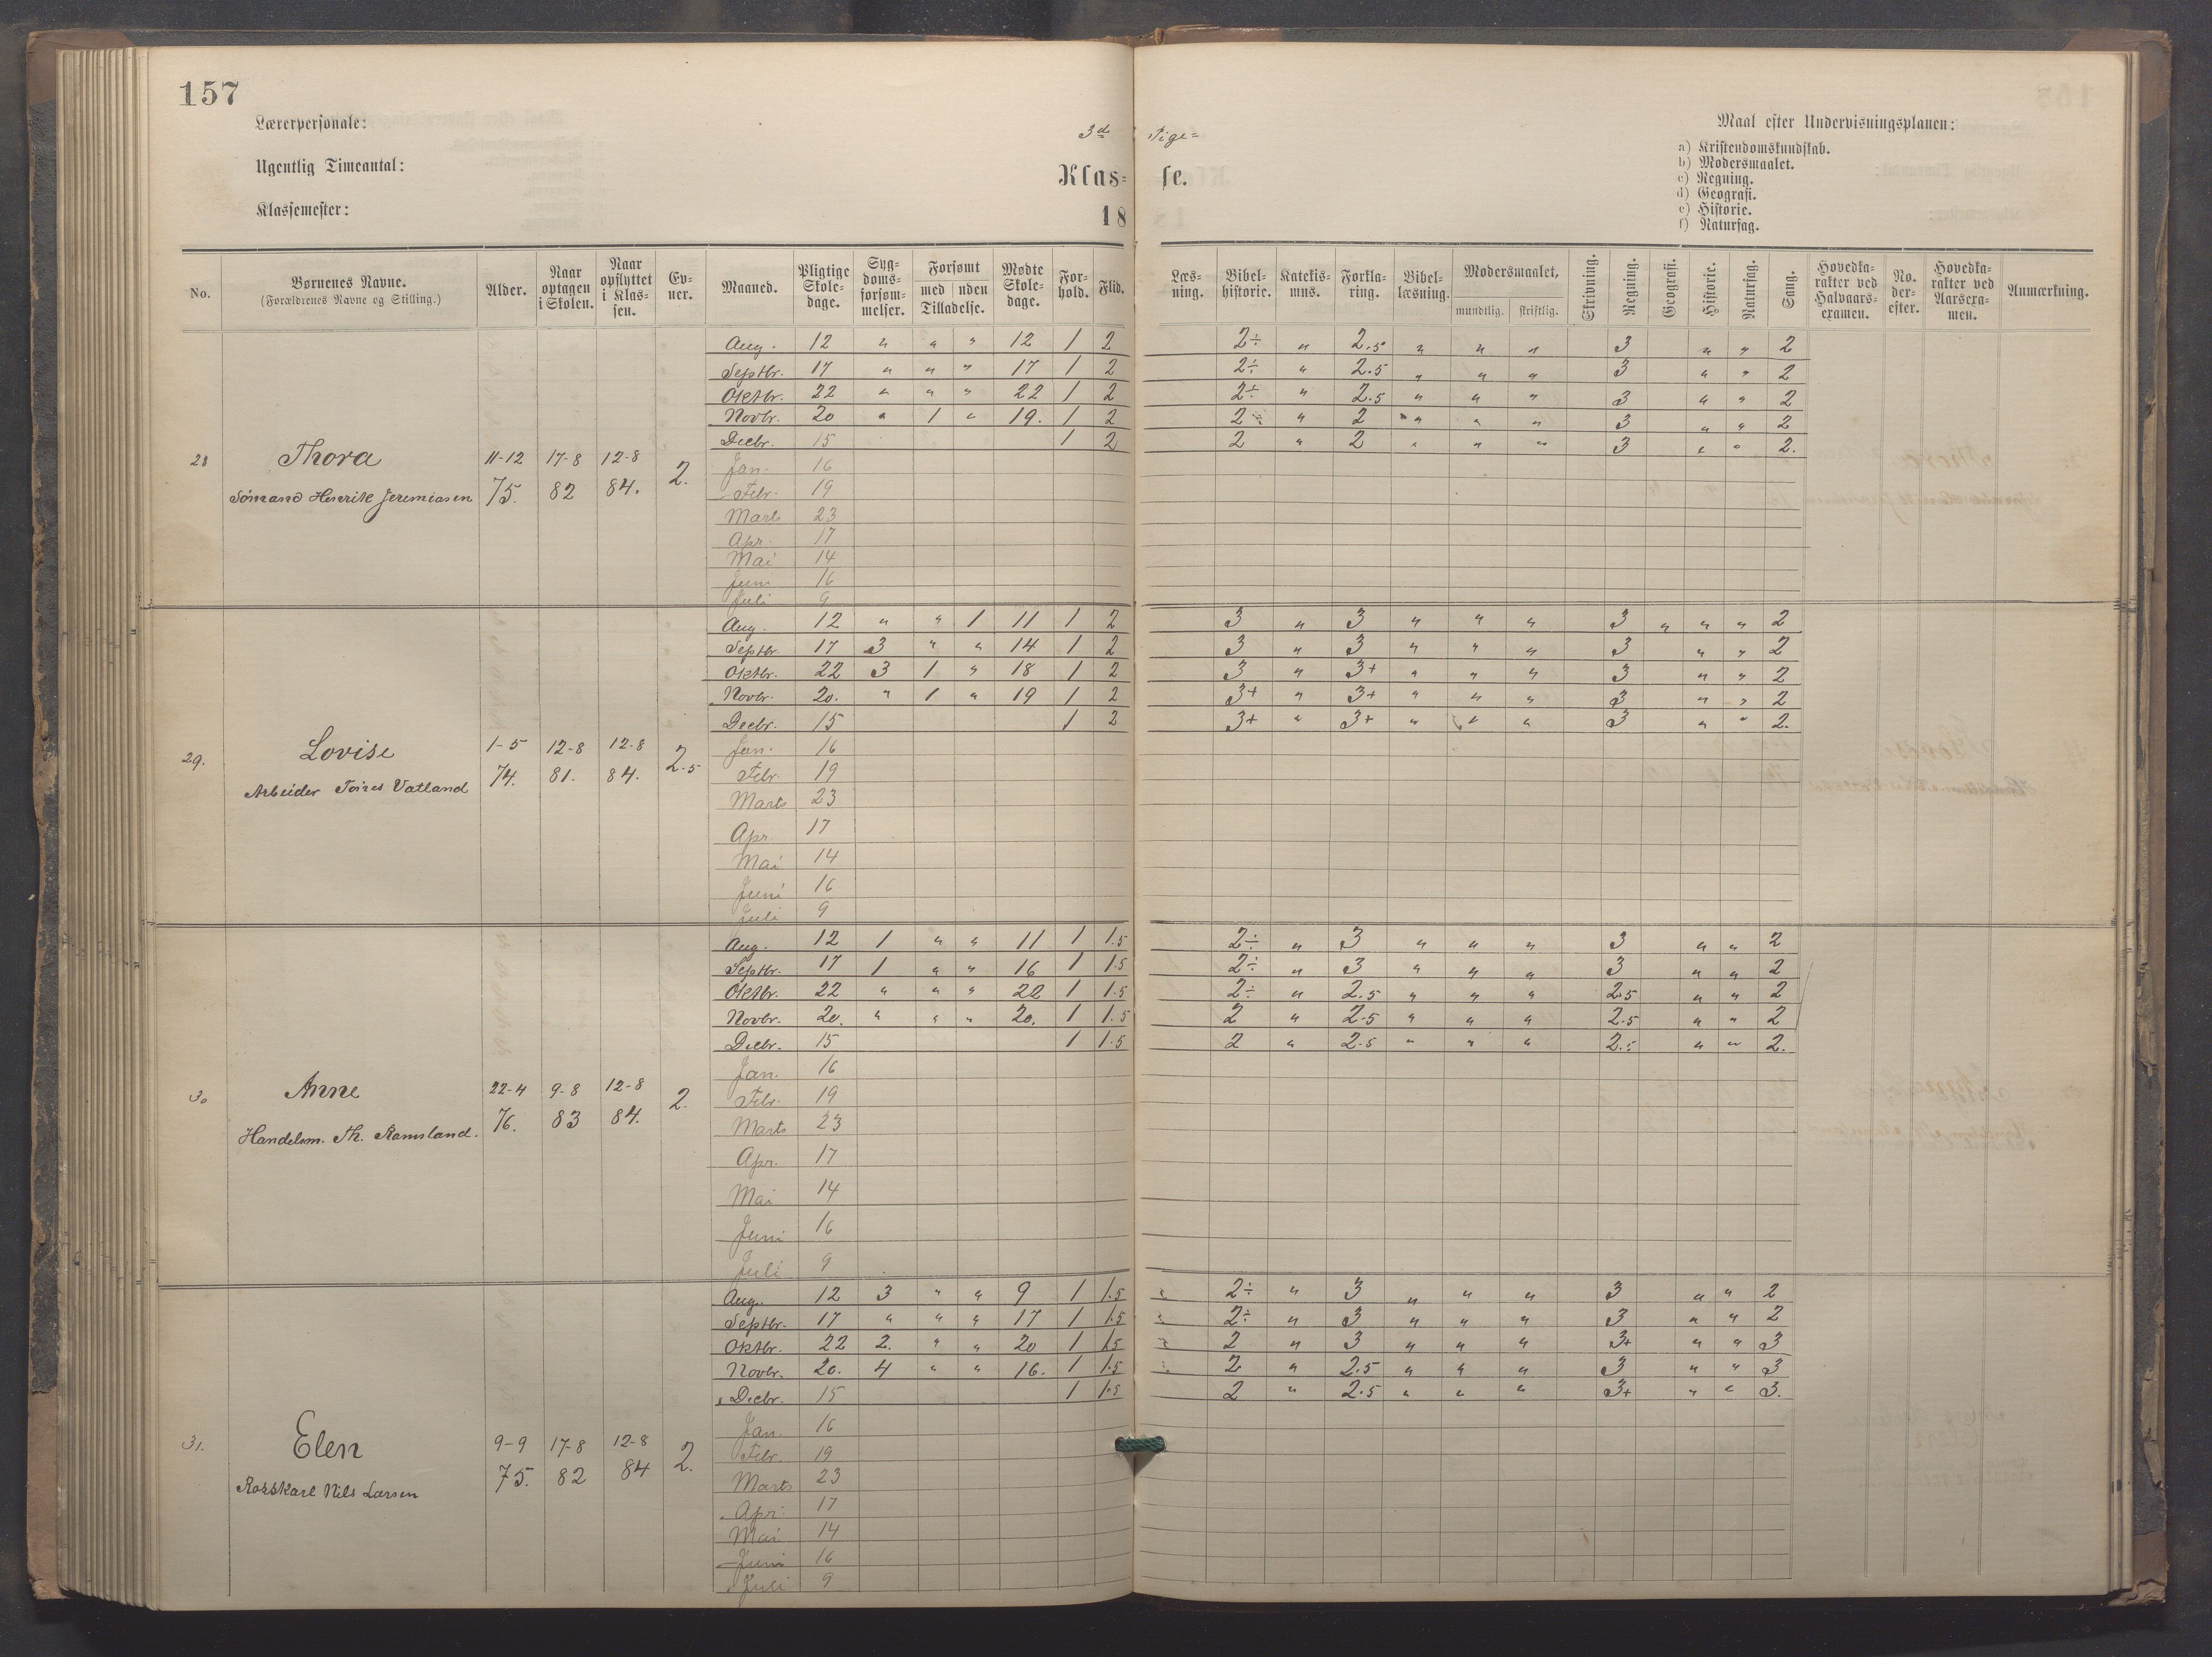 157
Lærerpersonale:
3d Pige=
Maal efter Undervisningsplanen:
a) Kristendomskundskab.
Ugentlig Timeantal:
Klas= se.
b) Modersmaalet.
c) Regning.
d) Geografi.
Klassemester:
18
e) Historie.
f) Naturfag.
No. Børnenes Navne. (Forældrenes Navne og Stilling.) Alder. Naar optagen i Skolen. Naar opflyttet i Klassen. Evner. Maaned. Pligtige Skoledage. Sygdomsforsømmelser. Forsømt med uden Tilladelse. Mødte Skoledage. Forhold. Flid. Læsning. Bibelhistorie. Katekismus. Forklaring. Bibellæsning. Modersmaalet, mundtlig. skriftlig. Skrivning. Regning. Geografi. Historie. Naturfag. Sang. Hovedkarakter ved Halvaarsexamen. No. derefter. Hovedkarakter ved Aarsexamen. Anmærkning.
Aug. 12 " " " 12 1 2 2÷ " 2.5 " " " 3 " " 2
Septbr. 17 " " " 17 1 2 2÷ " 2.5 " " " 3 " " 2
Oktbr. 22 " " " 22 1 2 2÷ " 2.5 " " " 3 " " 2
Novbr. 20 " 1 " 19. 1 2 2 " 2 " " " 3 " " 2
Decbr. 15 1 2 2 " 2 " " " 3 " " 2.
28 Thora 11-12 17-8 12-8 2.
Jan. 16
Sømand Henrik Jeremiasen 75. 82 84.
Febr. 19
Marts 23
Apr. 17
Mai 14
Juni 16
Juli 9
Aug. 12 " " 1 11 1 2 3 " 3 " " " 3 " " " 2
Septbr 17 3 " " 14 1 2 3 " 3 " " " 3 " " 2
Oktbr. 22 3 1 " 18 1 2 3 " 3+ " " " 3 " " 2
Novbr. 20. " 1 " 19 1 2 3+ " 3+ " " " 3 " " 2
Decbr. 15 1 2 3+ " 3+ " " " 3 " " 2.
29. Lovise 1-5 12-8 12-8 2.5
Jan. 16
Arbeider Vatland 74. 81. 84.
Febr. 19
Marts 23
Apr. 17
Mai 14
Juni 16
Juli 9
Aug. 12 1 " " 11 1 1.5 2÷ " 3 " " " 3 " " 2
Septbr. 17 1 " " 16 1 1.5 2÷ " 3 " " " 3 " " 2
Oktbr. 22 " " " 22 1 1.5 2÷ " 2.5 " " " 2.5 " " 2
Novbr. 20. " " " 20. 1 1.5 2 " 2.5 " " " 2.5 " " 2
Decbr. 15 1 1.5 2 " 2.5 " " " 2.5 " " 2.
Jan. 16
30 Anne 22-4 9-8 12-8 2.
Febr. 19
Handelsm. Th. Ramsland. 76. 83 84.
Marts 23
Apr. 17
Mai 14
Juni 16
Juli 9
Aug. 12 3 " " 9 1 1.5 2÷ " 3 " " " 3 " " 2
Septbr. 17 " " " 17 1 1.5 2÷ " 3 " " " 3 " " 2
Oktbr. 22 2. " " 20 1 1.5 2 " 3 " " " 3+ " " 3
Novbr. 20. 4 " " 16. 1 1.5 2 " 2.5 " " " 3 " " 3
Decbr. 15 1 1.5 2 " 2.5 " " " 3+ " " 3.
Jan. 16
31. Elen 9-9 17-8 12-8 2.
Febr. 19
Rorskarl Nils Larsen 75. 82 84
Marts 23
Apr. 17
Mai 14
Juni 16
Juli 9